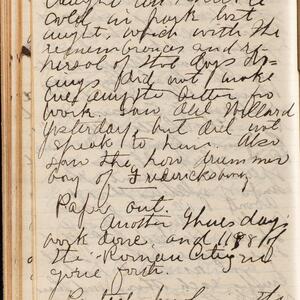 caught an
cold in park last
night, which with the
remembrances and re-
hersal of the days do-
ings did not make
me any the better for
work. Saw Abe Willard
yesterday, but did not
speak to him. Also
saw the how drummer
boy of Fredericksburg
Paper out.
Another Thursday's
work done, and 118 of
the "Roman Citizen
gone forth.
the